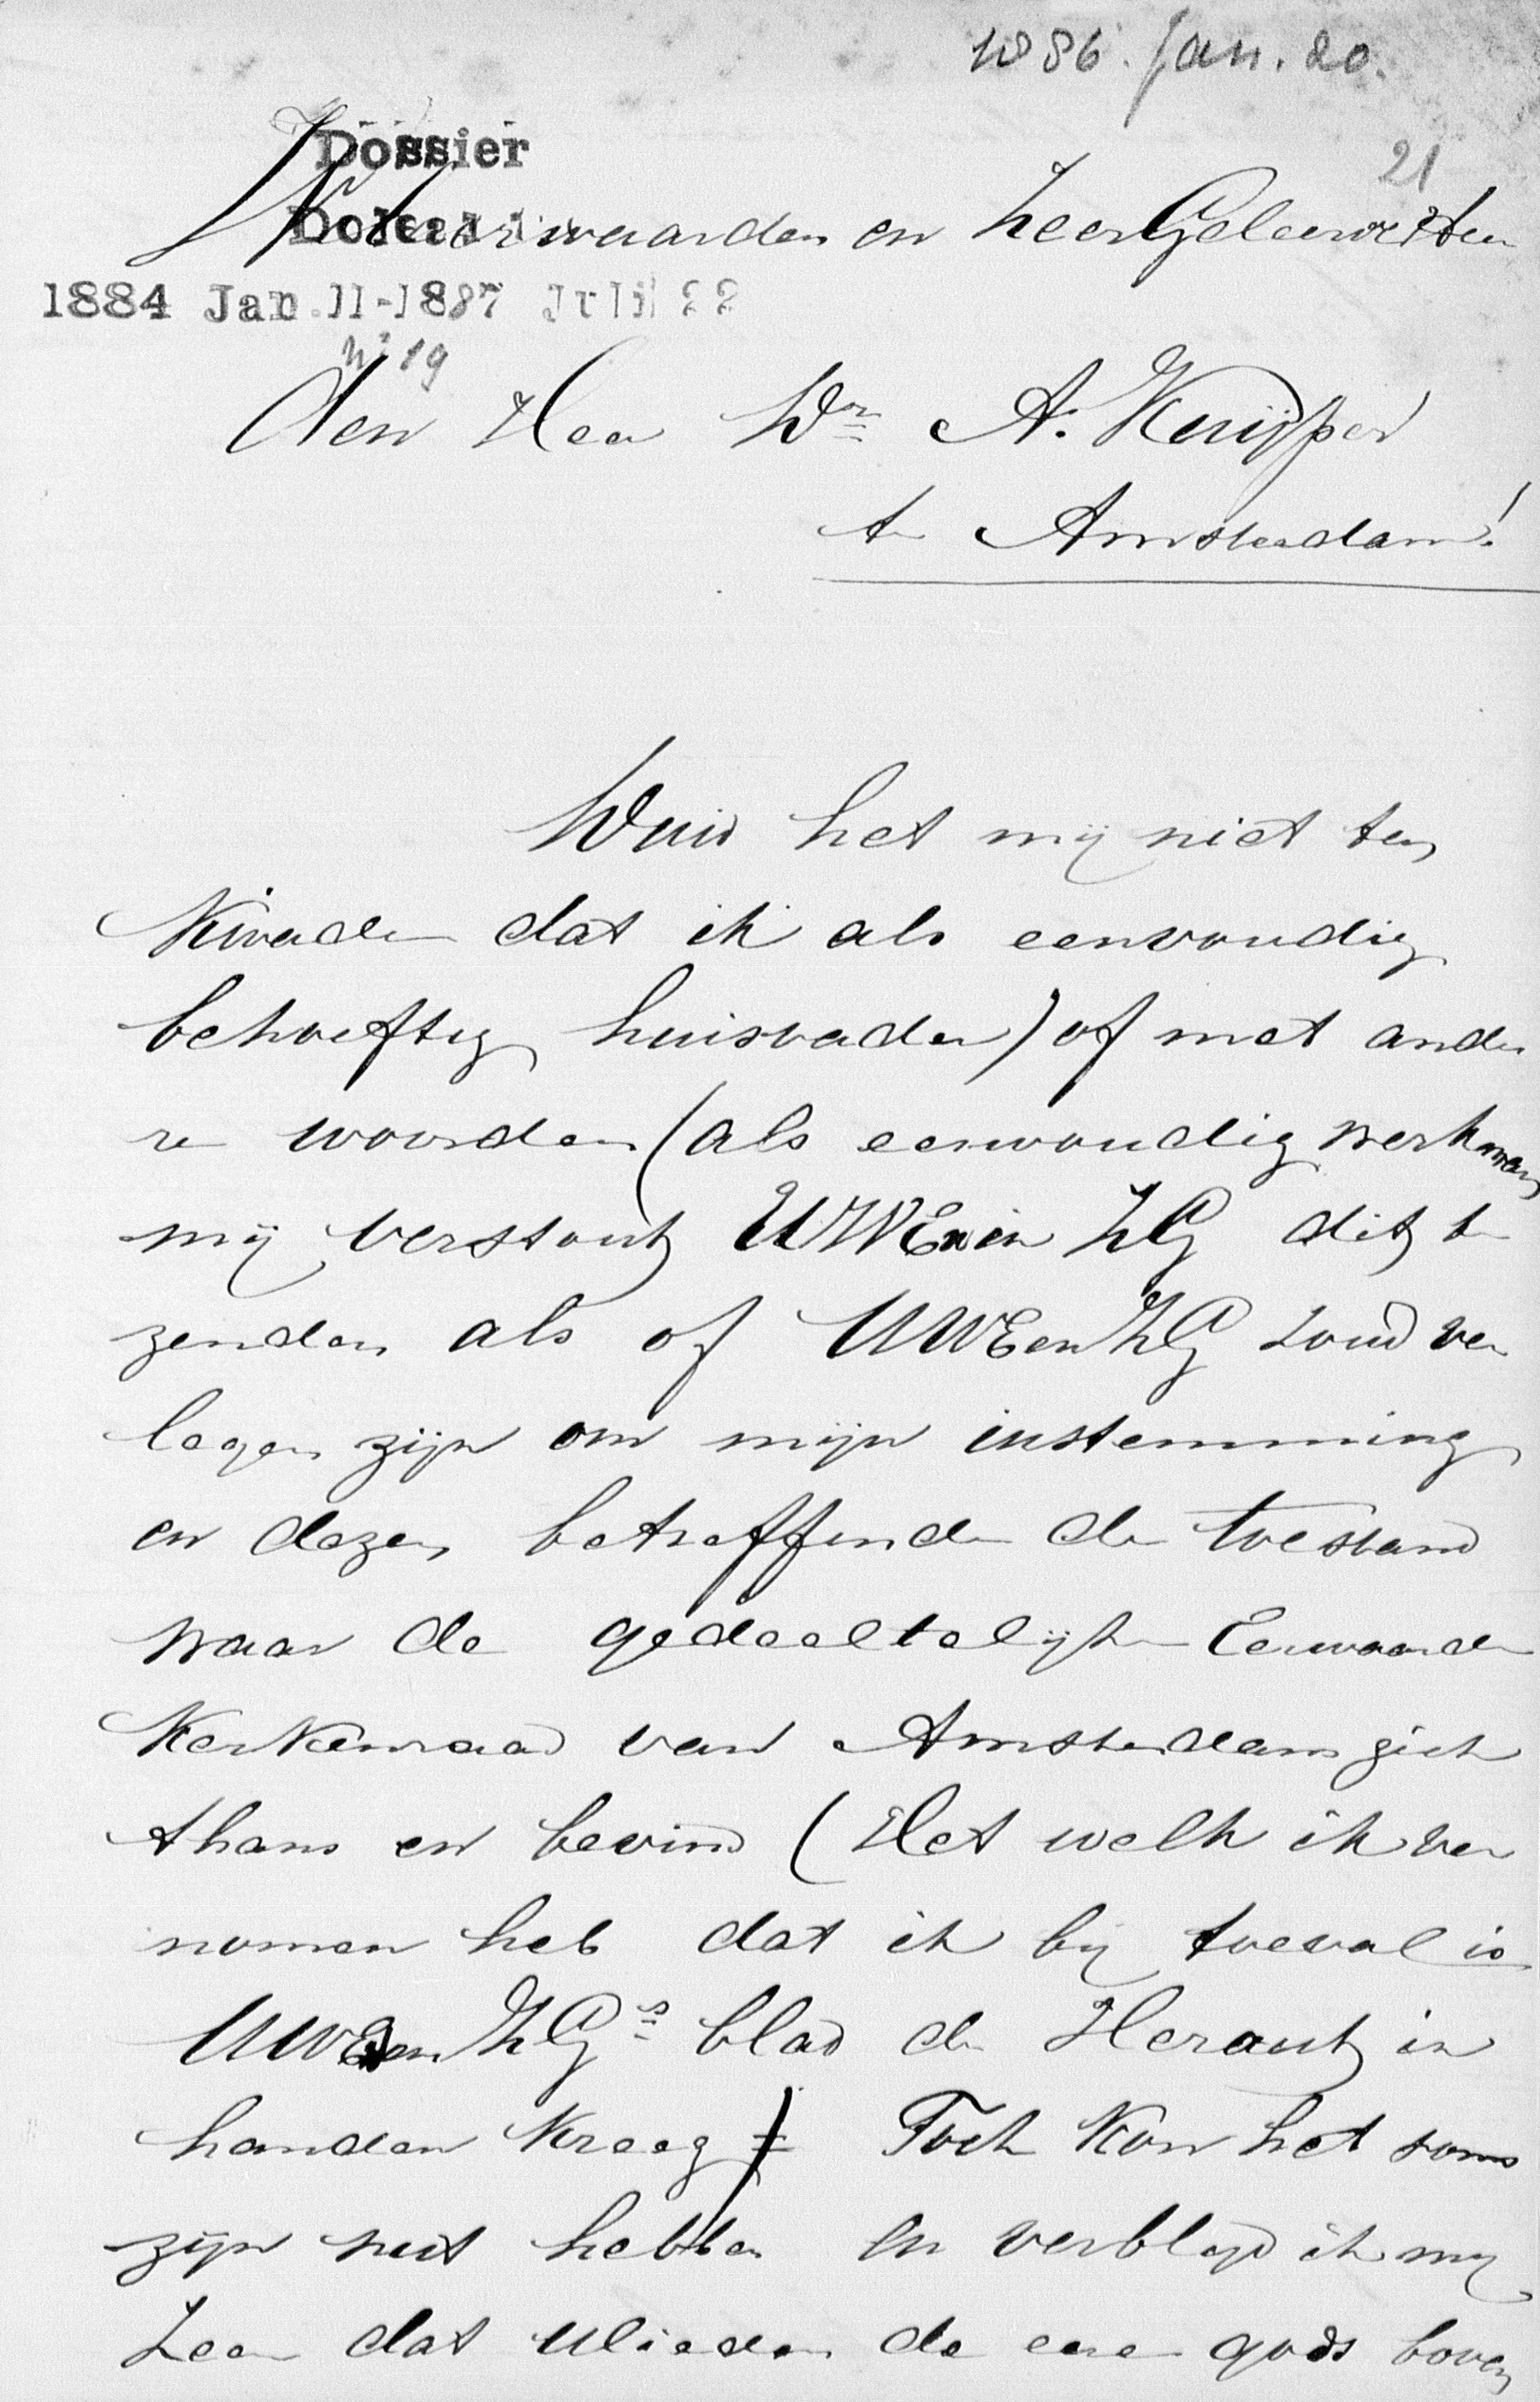 1886. Jan. 20.
21
Dossier
Doleantie
WelEerwaarden en ZeerGeleerden
1884 Jan. 11-1887 Juli 22
No 19
Den Heer Dr A. Kuijper
te Amsterdam!
Duid het mij niet ten
Kwade dat ik als eenvoudig
behoeftig huisvader) of met ande
re woorden (als eenvoudig werkman
mij verstout UWEn en ZG dit te
zenden als of UWEenZG zoud ver
legen zijn om mijn instemming
en dezen betreffende de toestand
waar de gedeeltelijke Eerwaarde
Kerkenraad van Amsterdam zich
thans en bevind (Het welk ik ver
nomen heb dat ik bij toeval is
UWEenZGs blad de Heraut in
handen Kreeg) Toch Kon het soms
zijn nut hebben en verblijd ik mij
Zeer dat Ulieden de eere gods boven